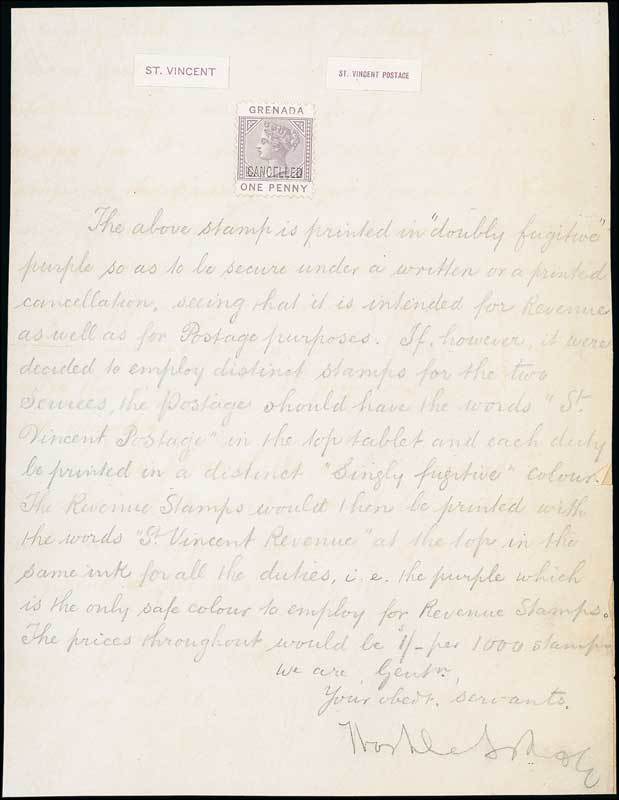 ST. VINCENT
ST. VINCENT POSTAGE
GRENADA
CANCELLED
ONE PENNY
The above stamp is printed in "doubly fugitive"
purple so as to be secure under a written or a printed
cancellation, seeing that it is intended for Revenue
as well as for Postage purposes. If, however, it were
decided to employ distinct stamps for the two
Services, the Postage should have the words "St.
Vincent Postage" in the top tablet and each duty
be printed in a distinct "Singly fugitive" colour.
The Revenue Stamps would then be printed with
the words "St. Vincent Revenue" at the top in the
same ink for all the duties, i.e. the purple which
is the only safe colour to employ for Revenue Stamps.
The prices throughout would be per 1000 stamps
We are, Gentn,
Your obedt. servants.